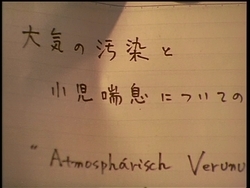 大気の汚染と
小児喘息についての
"Atmosphärisch Verunu